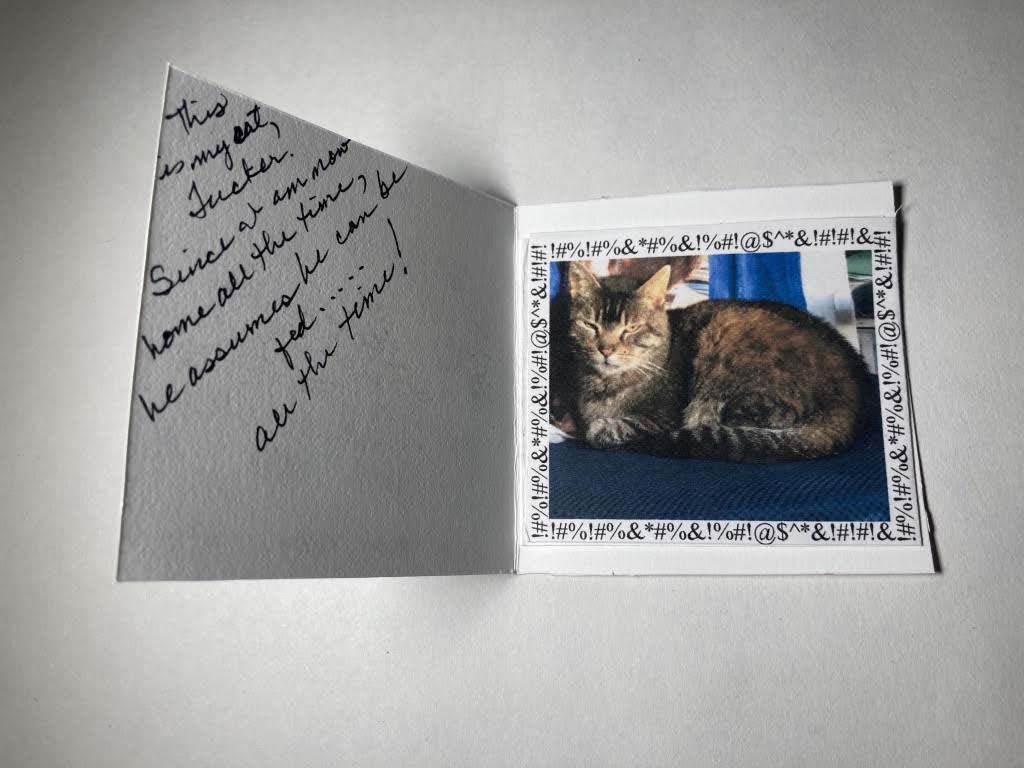 This
is my cat,
Tucker.
Since I am now
home all the time,
he assumes he can be
fed.....
all the time!
!#%!#%&*#%&!%#!@$^*&!#!#!&
!#%!#%&*#%&!%#!@$^*&!#!#!
!#%!#%&*#%&!%#!@$^*&!#!#!
!#%!#%&*#%&!%#!@$^*&!#!#!&